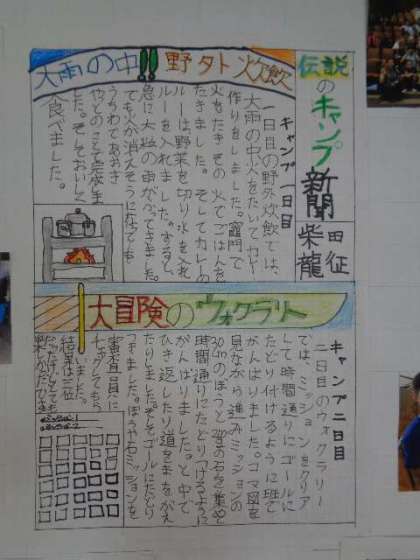 伝説のキャンプ新聞
柴田
龍征
大雨の中!!野外炊飲
キャンプ一日目
一日目の野外炊飲では、
大雨の中火をたいてカレー
作りをしました。竈門で
火をたきその火でごはんを
たきました。そしてカレーの
ルーは野菜を切り水を入れ
ルーを入れました。すると、
急に大粒の雨がふってきました。
とても火が消えそうになっても
うちわであおぎ
やっとのことで完成しま
した。そしておいしく
食べました。
大冒険のウォクラリー
キャンプ二日目
二日目のウォクラリー
では、ミッションをクリア
して時間通りにゴールに
たどり付けるように班で
がんばりました。コマ図を
見ながら進みミッションの
30cmのぼうと
時間通りにたどりつけるように
がんばりました。と中で
ひき返したり道をまちがえ
たりしました。そしてゴールにたどり
つきました。ぼうや石ミッションを
審査員に
チェックしてもら
いました。
結果は三位